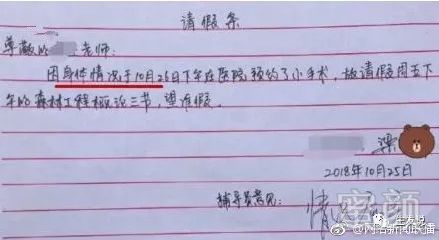 请假条
尊敬的 老师:
因身体情况于10月26日下午在医院预约了小手术,故请假周五下
午的森林工程概论三节,望准假。
梁
2018年10月25日
辅导员意见:情况
@网络新闻联播